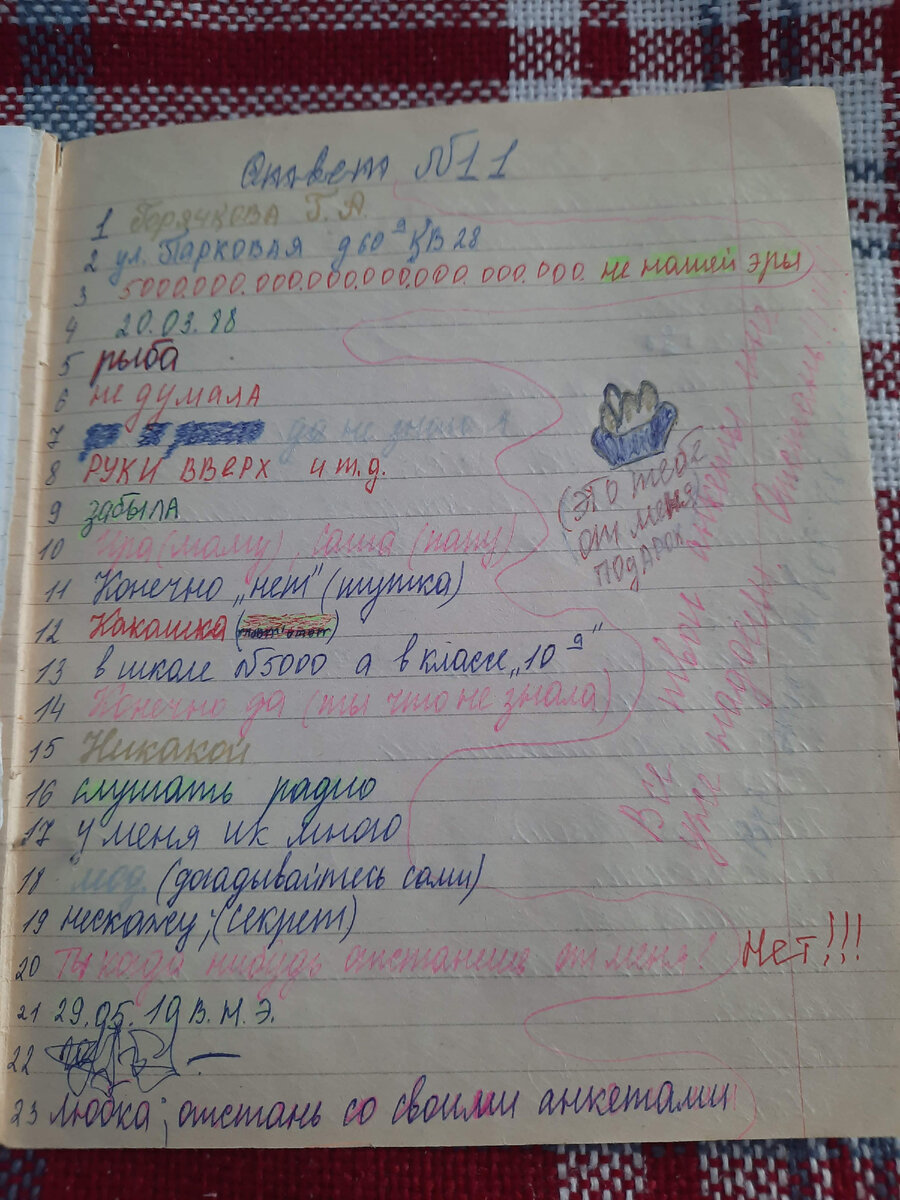 Ответ №11
1 Горячкова Г. А.
2 ул. Парковая д 60 а кв 28
3 5000.000.000.000.000.000.000.000.000. не нашей эры
4 20.03.88
5 рыба
6 не думала
7 да не знаю я
8 РУКИ ВВЕРХ и т.д.
9 забыла
10 Ира (маму), Саша (папу)
11 Конечно „нет" (шутка)
12 Какашка
13 в школе №5000 а в классе „10 д"
14 Конечно да (ты что не знала)
15 Никакой
16 слушать радио
17 У меня их много
18 мод. (догадывайтесь сами)
19 нескажу, (секрет)
20 Ты када нибудь отстанеш от меня! Нет!!!
21 29.05.19 в. н. э.
22 —
23 Любка, отстань со своими анкетами
(это тебе
от меня)
подарок
Все твои анкеты мне
уже надоели. Отстань!!!